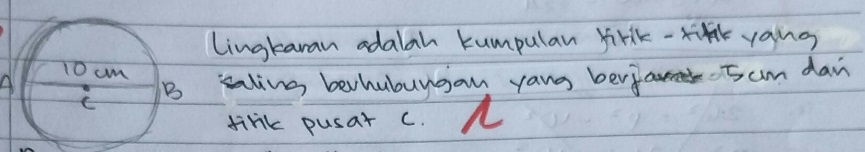 Lingkaran adalah kumpulan titik - titik yang
10 cm
A
saling berhubungan yang berjarak 5 cm dari
B
c
titik pusat c.